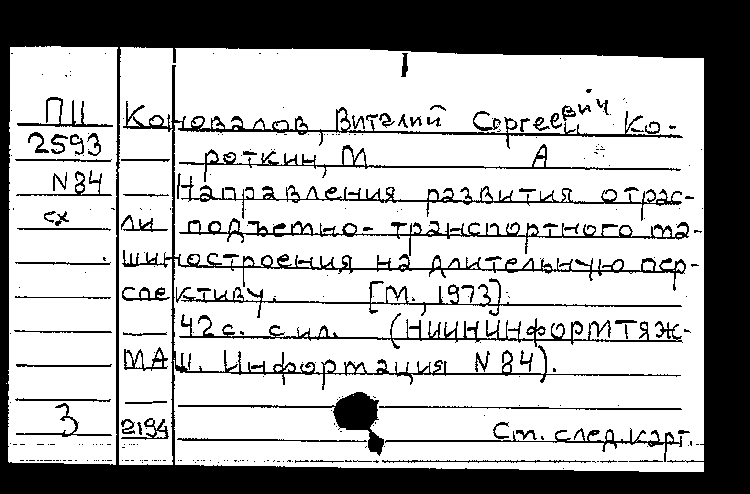 ПII Коновалов, Виталий Сергеевич и Ко-
2593 роткин, М А
N84 Направления развития отрас-
сх ли подъемно-транспортного ма-
шиностроения на длительную пер-
спективу. [М., 1973].
42 с. с ил. (НИИНИНФОРМТЯЖ-
МАШ. Информация N 84).
3 2194 Ст. след. карт.